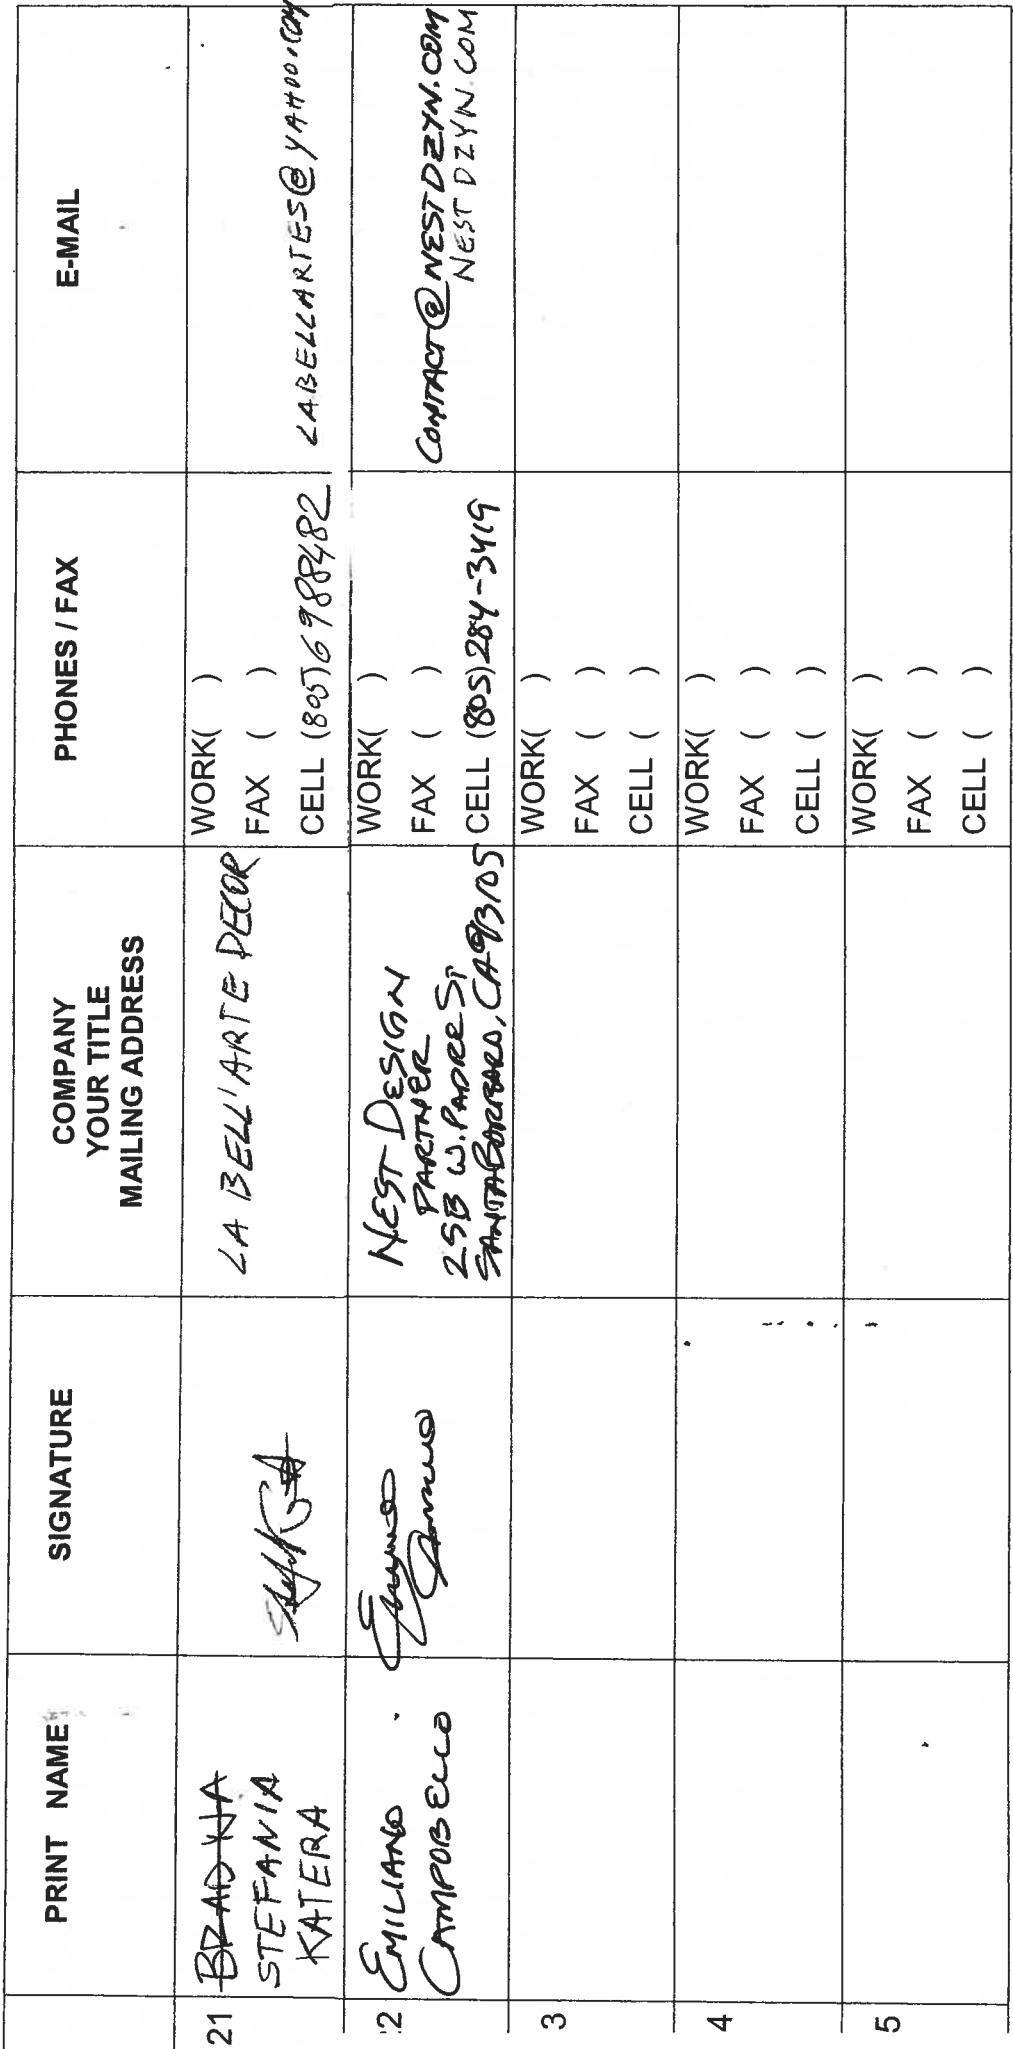 PRINT NAME
SIGNATURE
COMPANY
YOUR TITLE
MAILING ADDRESS
PHONES / FAX
E-MAIL
21
STEFANIA
KATERA
LA BELL'ARTE DECOR
WORK( )
FAX ( )
CELL (805)6988482
LABELLARTES@YAHOO.COM
22
EMILIANO
CAMPOBELLO
NEST DESIGN
PARTNER
25B W. PADRE ST
SANTA BARBARA, CA 93105
WORK( )
FAX ( )
CELL (805)284-3419
CONTACT@NESTDZYN.COM
NESTDZYN.COM
3
WORK( )
FAX ( )
CELL ( )
4
WORK( )
FAX ( )
CELL ( )
5
WORK( )
FAX ( )
CELL ( )